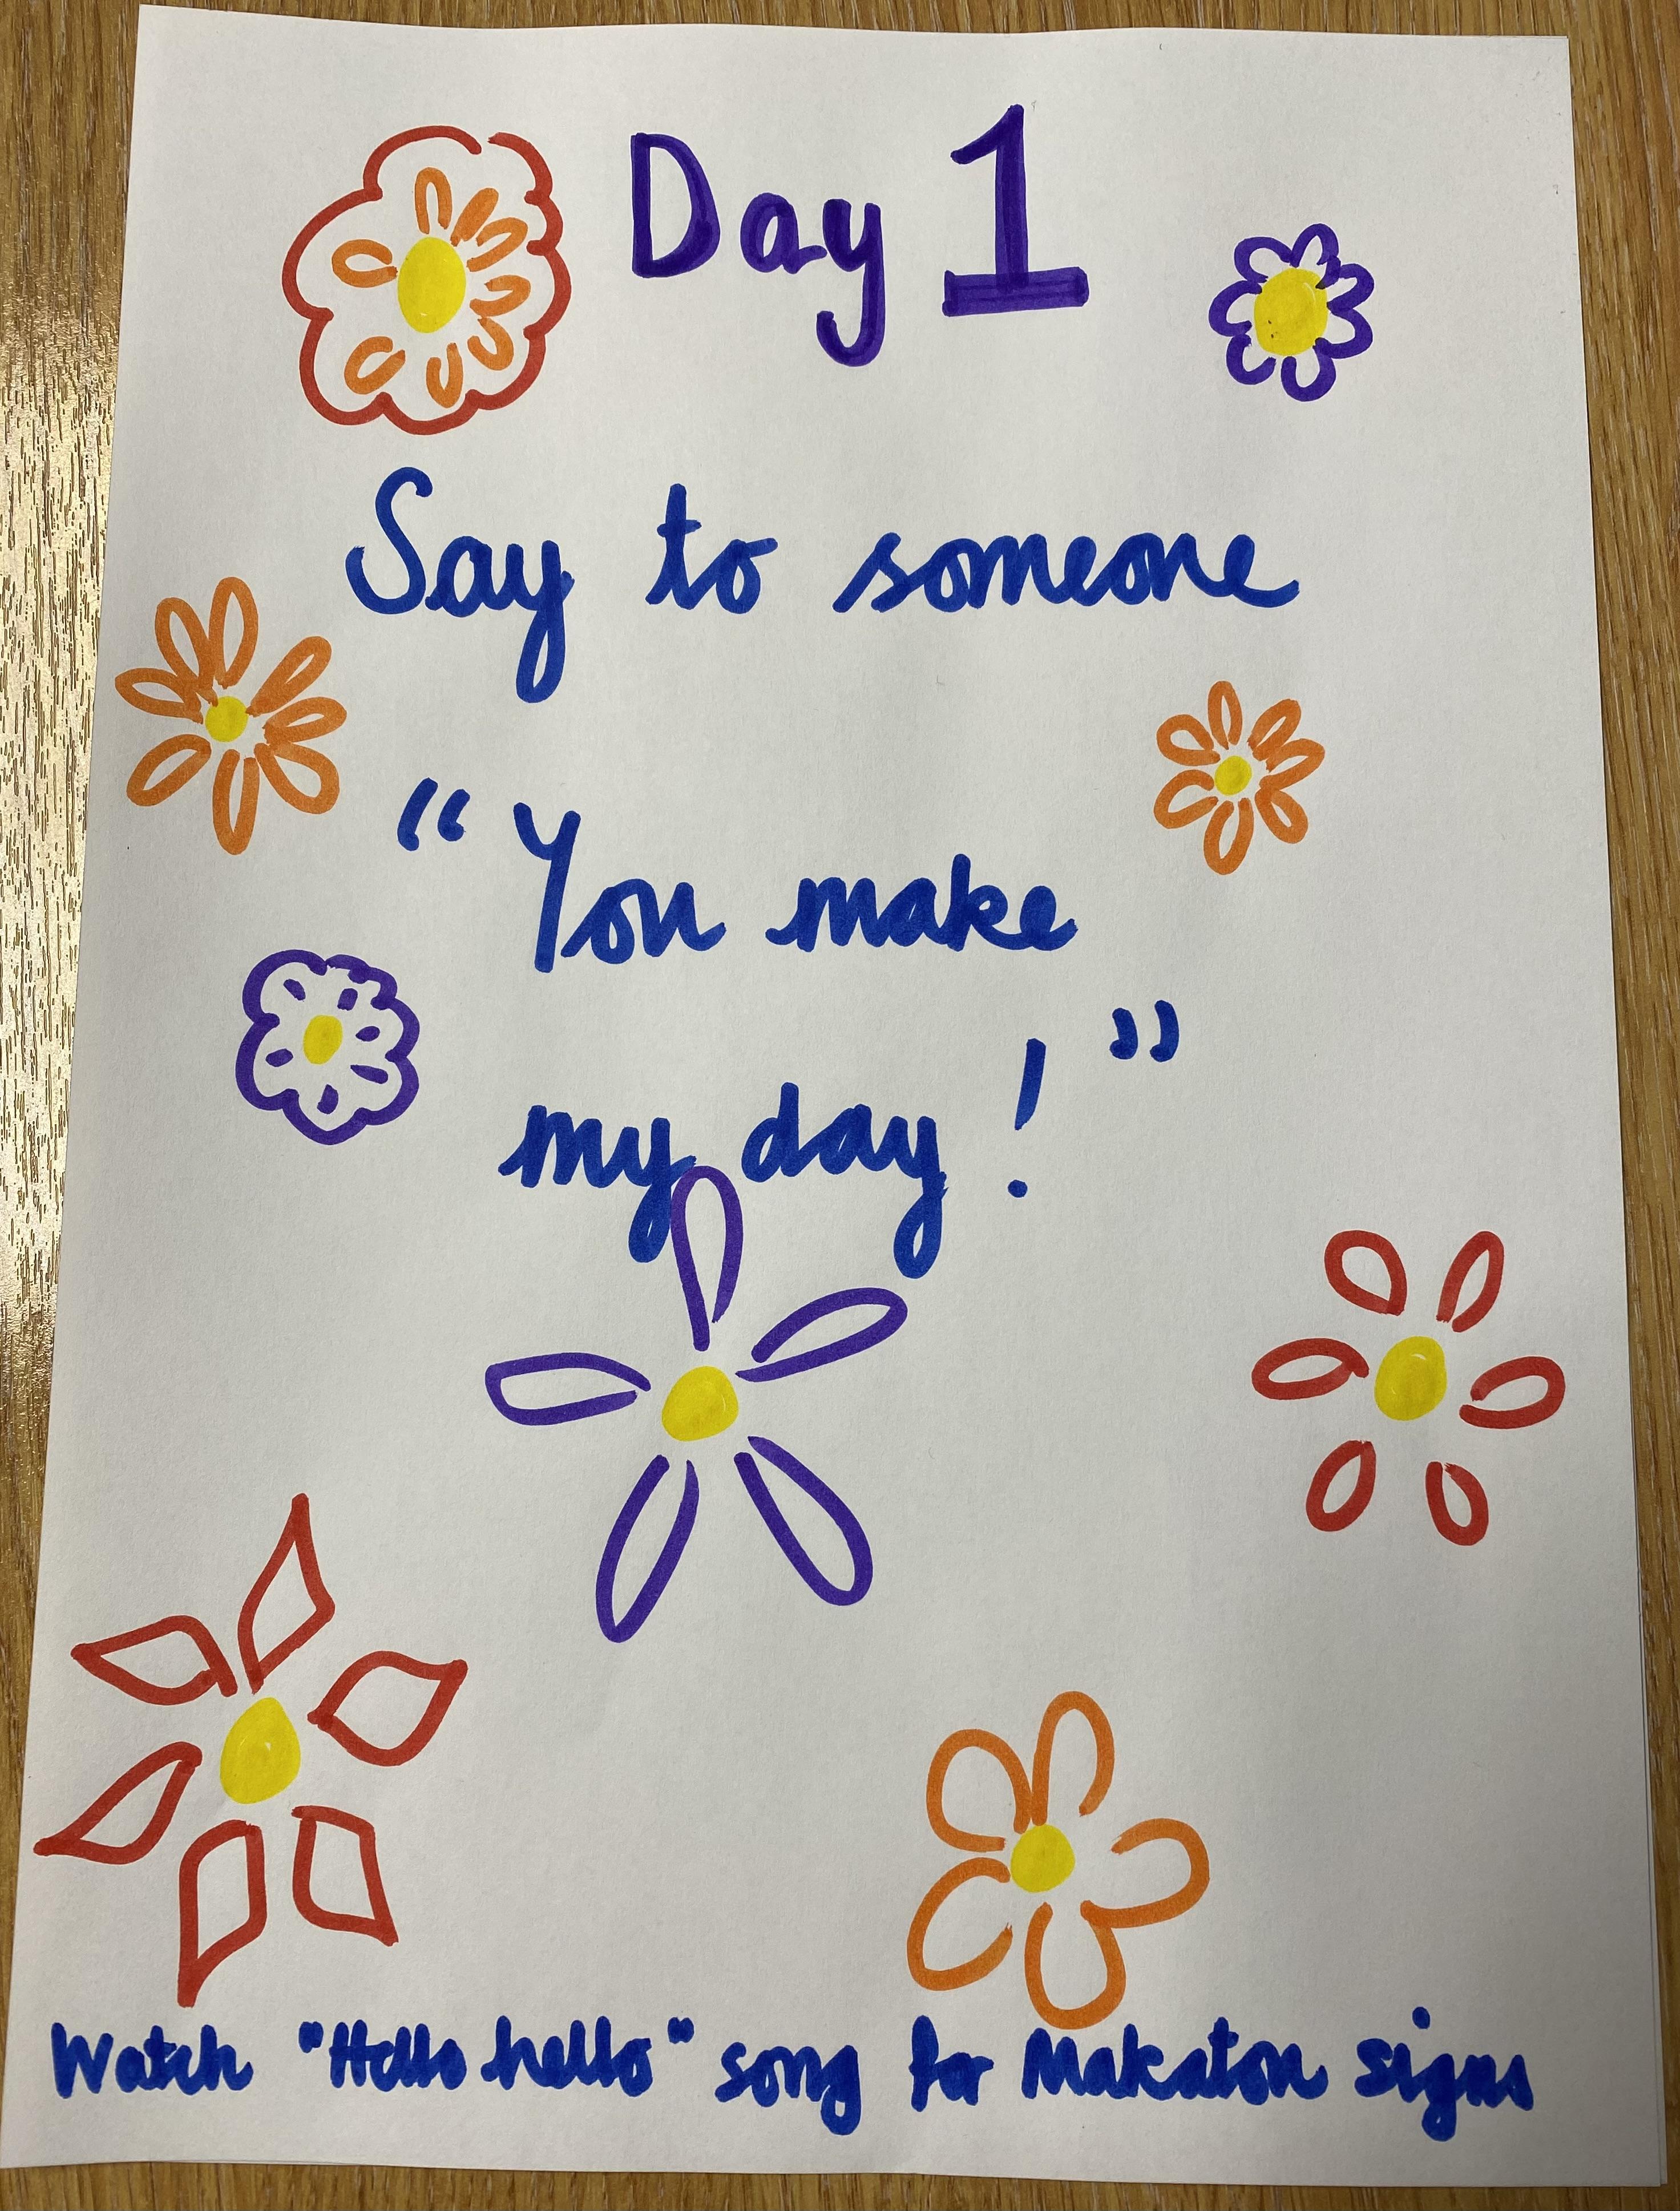 Day 1
Say to someone
“You make
my day!”
Watch "Hello hello" song for Makaton signs